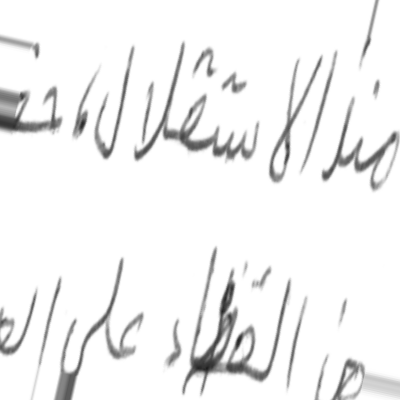 منذ الاستقلال،
من القضاء على